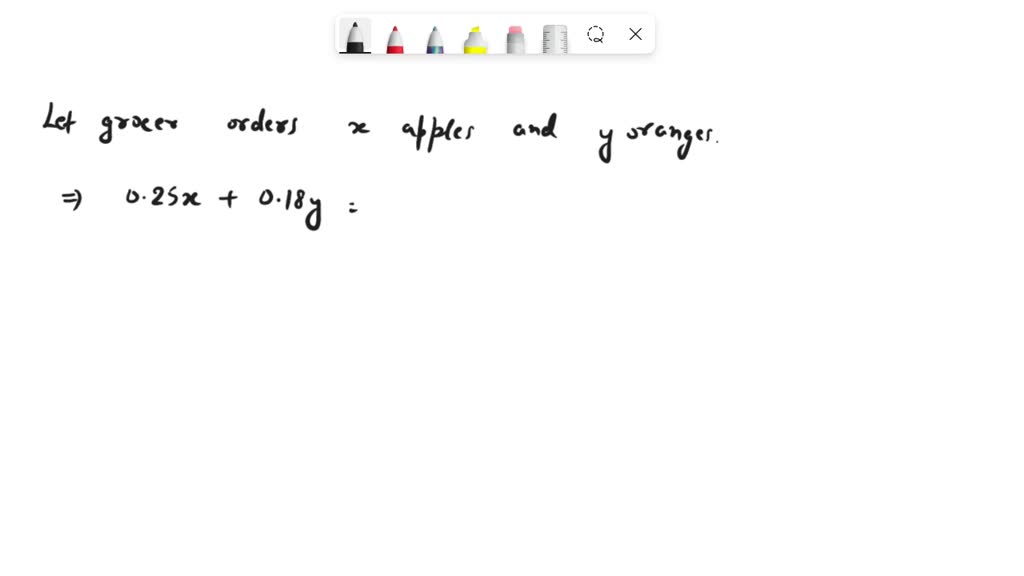 Let grocer orders x apples and y oranges.
⇒ 0.25x + 0.18y =